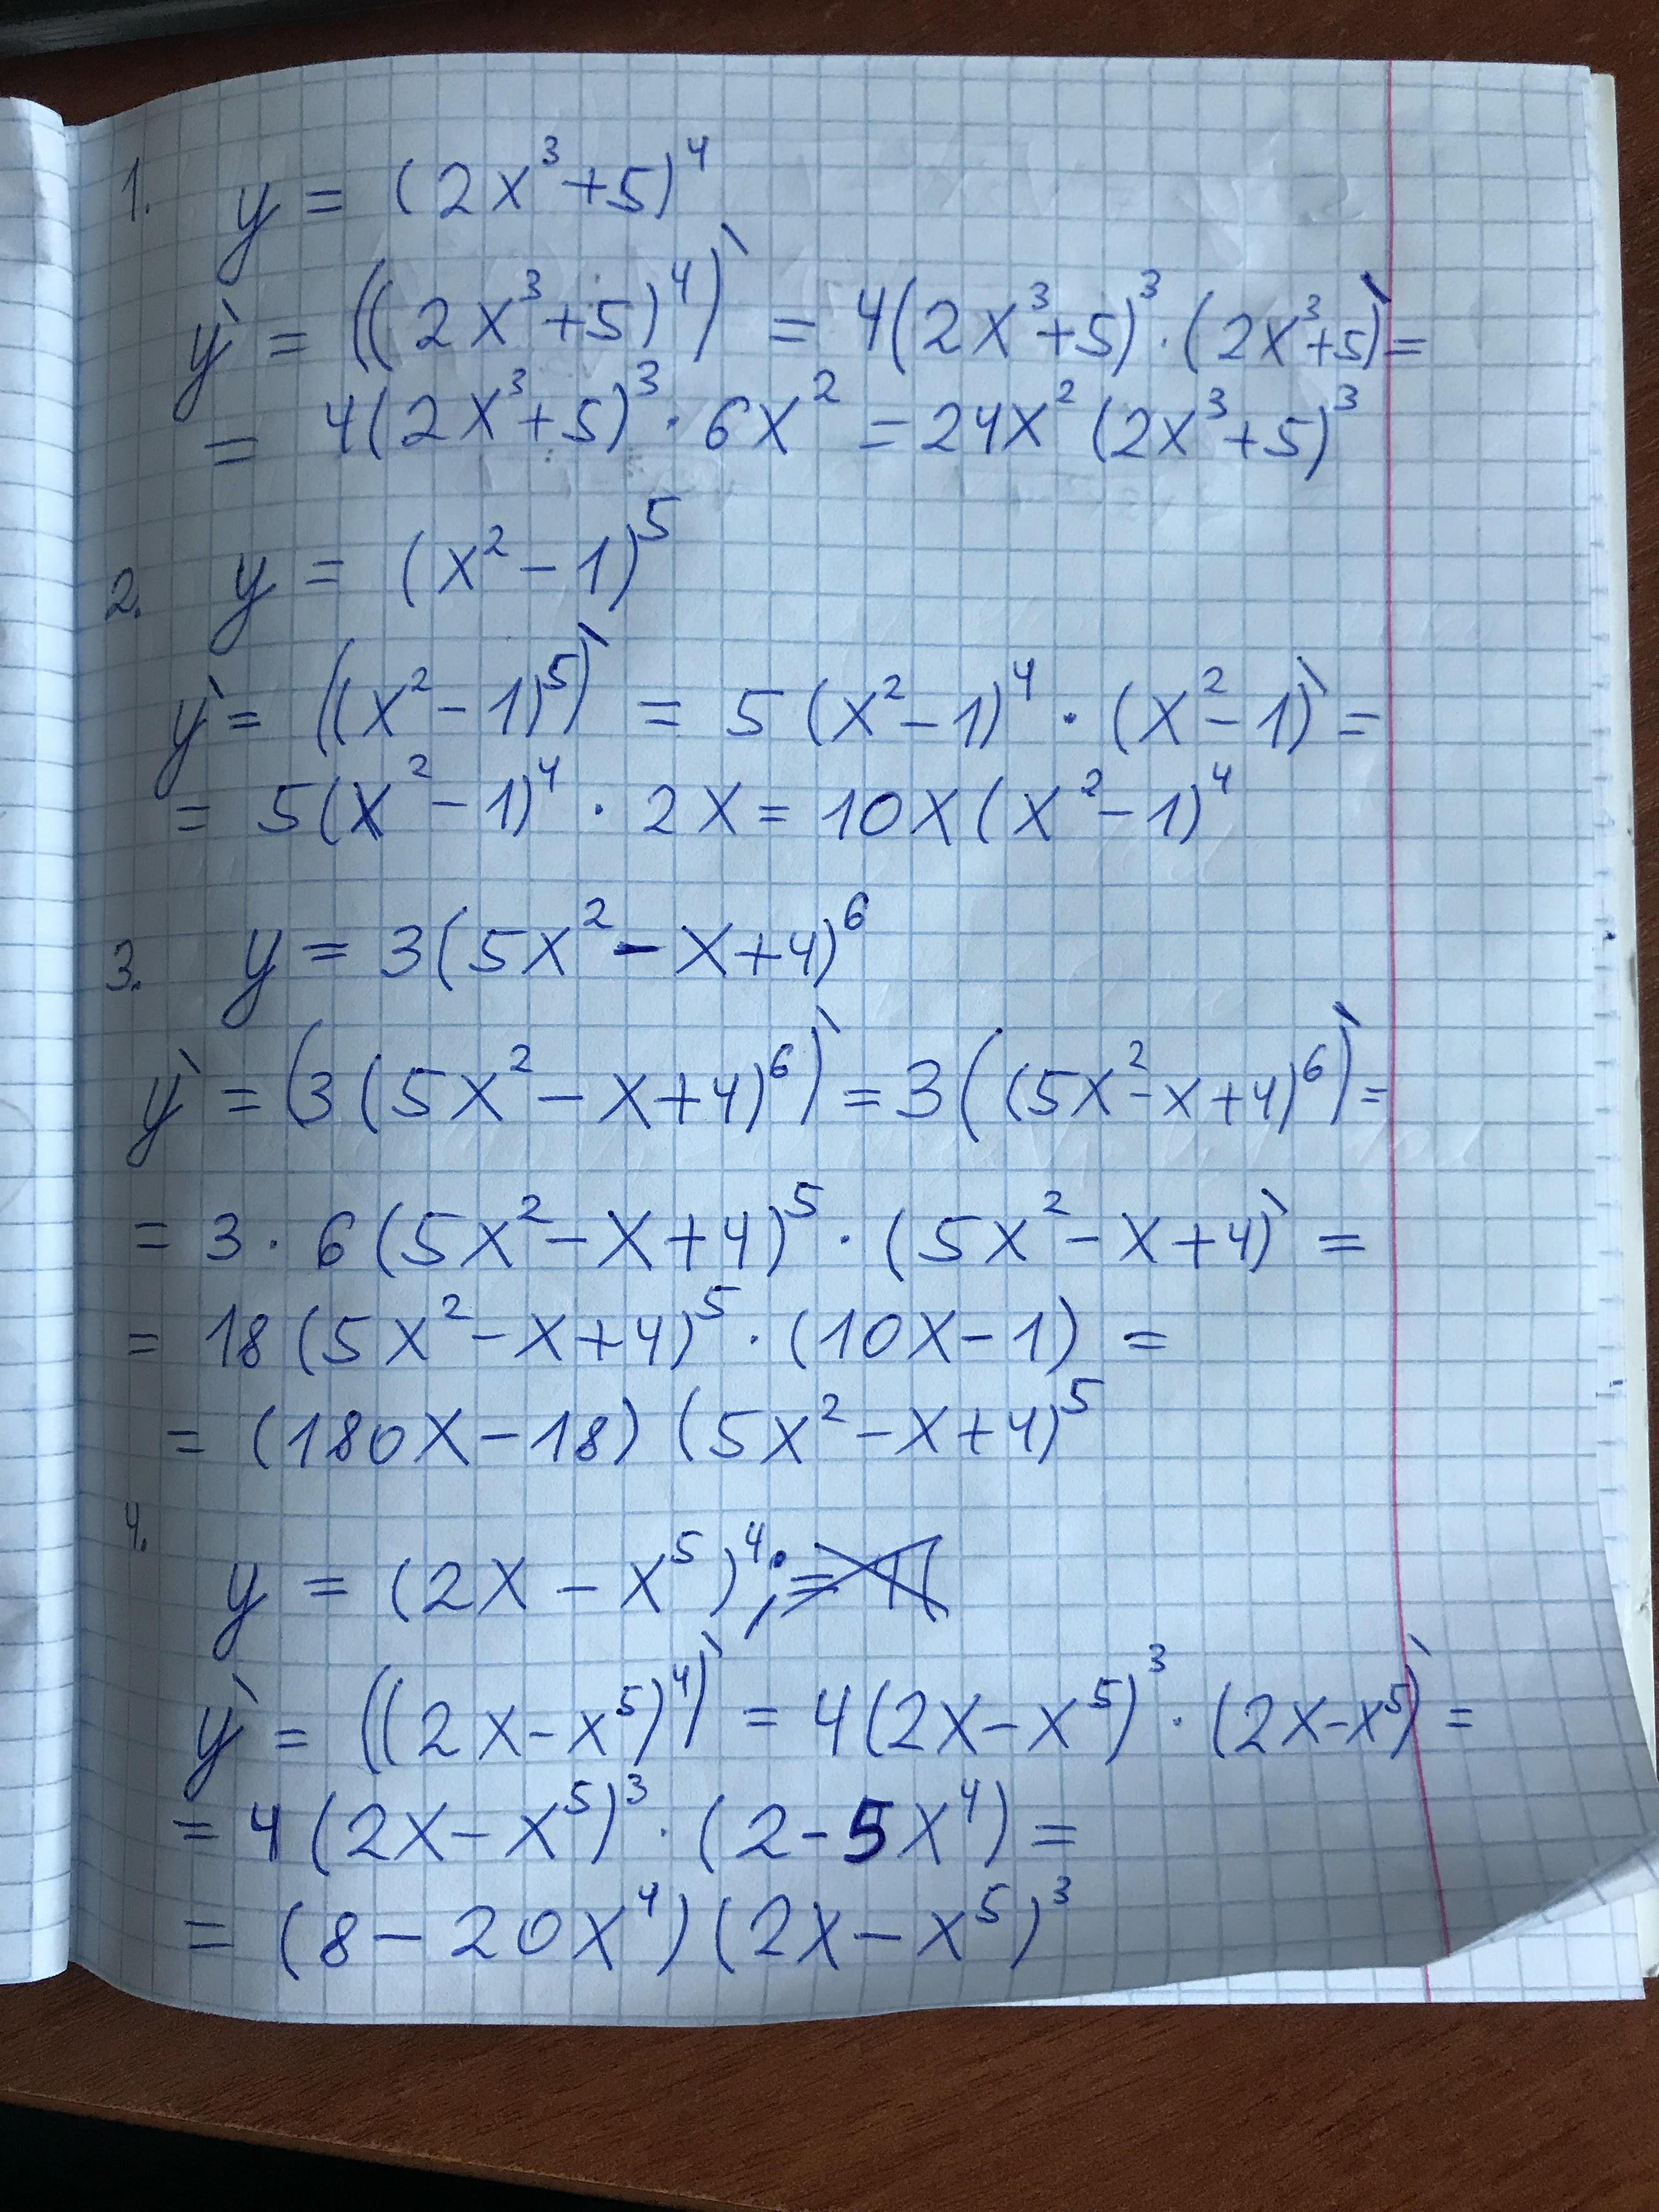 1. y = (2x³+5)⁴
y` = ((2x³+5)⁴)` = 4(2x³+5)³·(2x³+5)`=
= 4(2x³+5)³·6x² = 24x²(2x³+5)³
2. y = (x²-1)⁵
y` = ((x²-1)⁵)` = 5(x²-1)⁴·(x²-1)`=
= 5(x²-1)⁴·2x = 10x(x²-1)⁴
3. y = 3(5x²-x+4)⁶
y` = (3(5x²-x+4)⁶)` = 3((5x²-x+4)⁶)`=
= 3·6(5x²-x+4)⁵·(5x²-x+4)` =
= 18(5x²-x+4)⁵·(10x-1) =
= (180x-18)(5x²-x+4)⁵
4.
y = (2x-x⁵)⁴;
y` = ((2x-x⁵)⁴)` = 4(2x-x⁵)³·(2x-x⁵)` =
= 4(2x-x⁵)³·(2-5x⁴) =
= (8-20x⁴)(2x-x⁵)³